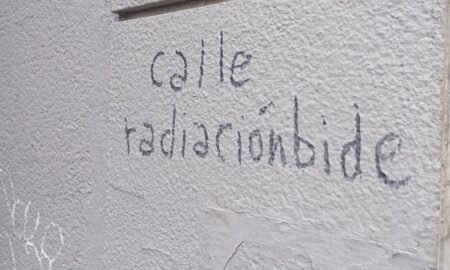 calle
radiaciónbide